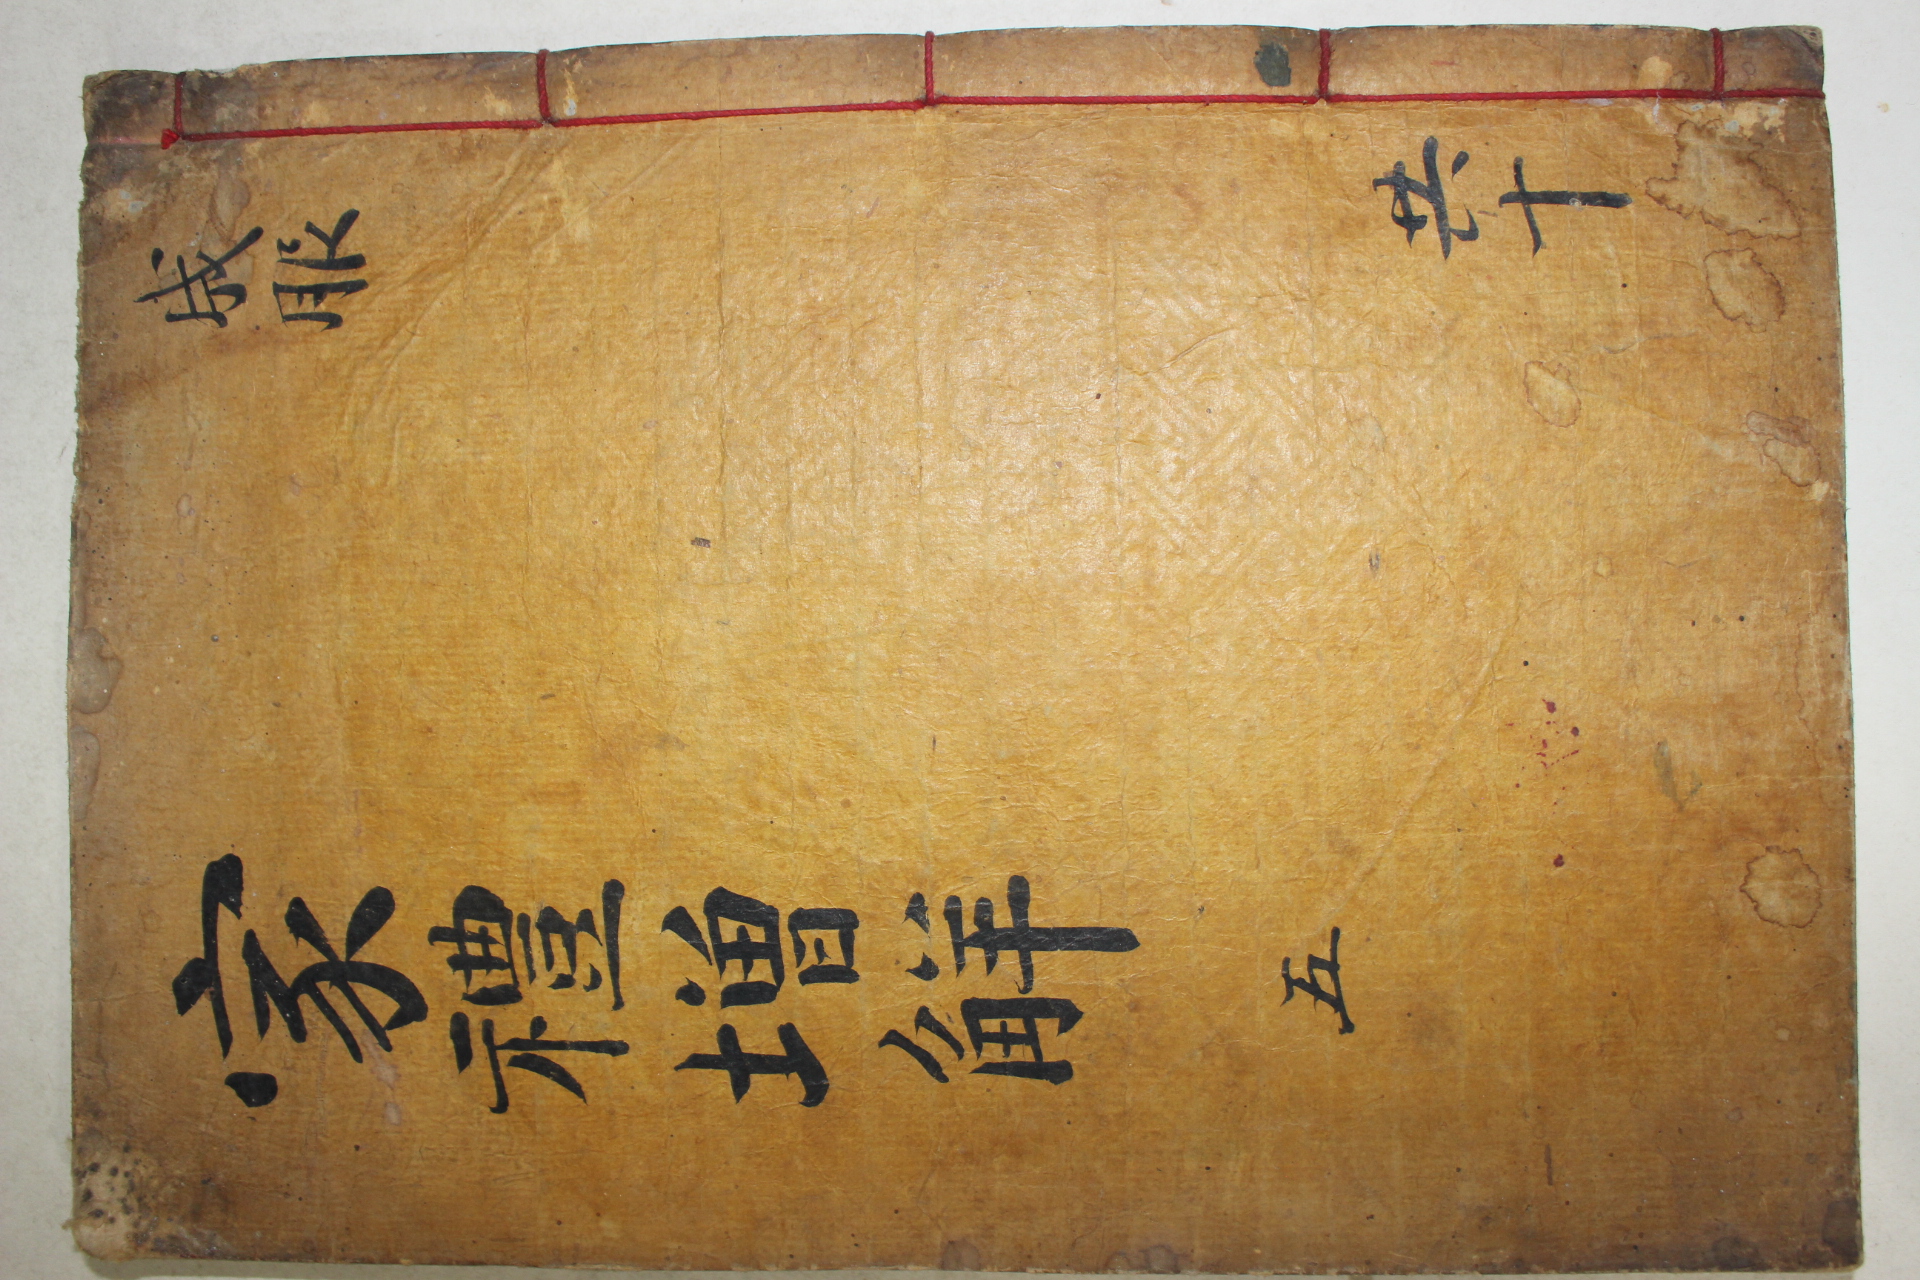 家禮增解 五
成服
共十